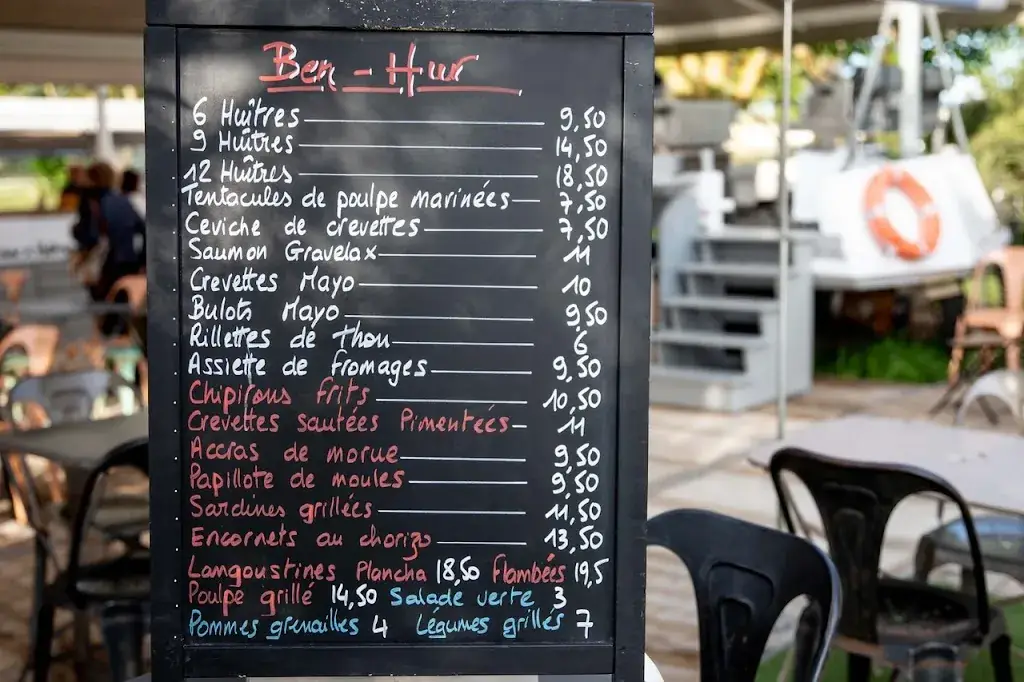 Ben-Hur
6 Huîtres 9,50
9 Huîtres 14,50
12 Huîtres 18,50
Tentacules de poulpe marinées 7,50
Ceviche de crevettes 7,50
Saumon Gravelax 11
Crevettes Mayo 10
Bulots Mayo 9,50
Rillettes de thon 6
Assiette de fromages 9,50
Chipirons frits 10,50
Crevettes sautées Pimentées 11
Accras de morue 9,50
Papillote de moules 9,50
Sardines grillées 11,50
Encornets au chorizo 13,50
Langoustines Plancha 18,50 Flambées 19,5
Poulpe grillé 14,50 Salade verte 3
Pommes grenailles 4 Légumes grillés 7